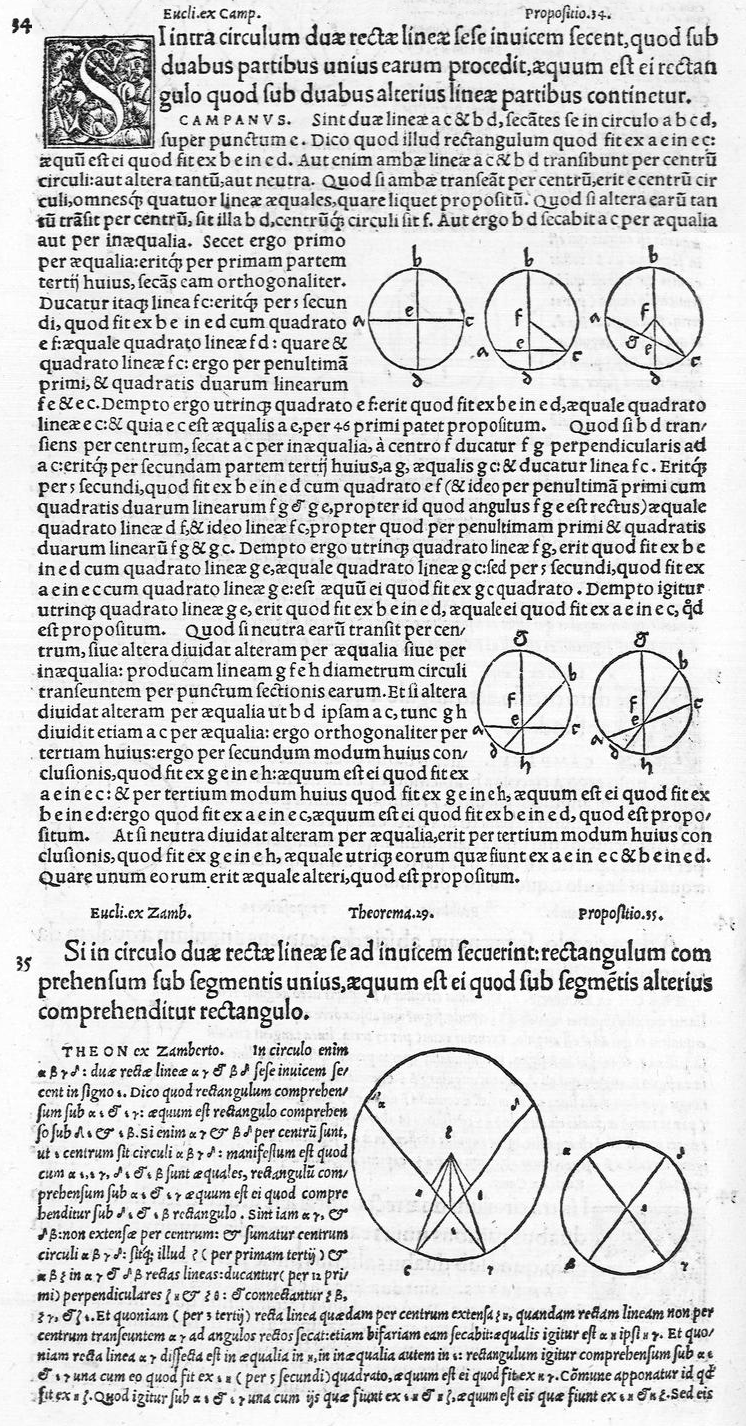 Eucli.ex Camp. Propositio.34.
34
SI intra circulum duæ rectæ lineæ sese inuicem secent,quod sub
duabus partibus unius earum procedit,æquum est ei rectan
gulo quod sub duabus alterius lineæ partibus continetur.
CAMPANVS. Sint duæ lineæ a c & b d,secātes se in circulo a b c d,
super punctum e. Dico quod illud rectangulum quod fit ex a e in e c:
æquū est ei quod fit ex b e in e d. Aut enim ambæ lineæ a c & b d transibunt per centrū
circuli:aut altera tantū,aut neutra. Quod si ambæ transeāt per centrū,erit e centrū cir
culi,omnesq́ quatuor lineæ æquales,quare liquet propositū. Quod si altera earū tan
tū trāsit per centrū, sit illa b d,centrūq́ circuli sit f. Aut ergo b d secabit a c per æqualia
aut per inæqualia. Secet ergo primo
per æqualia:eritq́ per primam partem
tertij huius, secās eam orthogonaliter.
Ducatur itaq́ linea f c:eritq́ per 5 secun
di, quod fit ex b e in e d cum quadrato
e f:æquale quadrato lineæ f d : quare &
quadrato lineæ f c: ergo per penultimā
primi, & quadratis duarum linearum
b b b
e a c f a e c f a g e c
d d d
f e & e c.Dempto ergo utrinq́ quadrato e f:erit quod fit ex b e in e d,æquale quadrato
lineæ e c:& quia e c est æqualis a e,per 46 primi patet propositum. Quod si b d tran/
siens per centrum, secat a c per inæqualia, à centro f ducatur f g perpendicularis ad
a c:eritq́ per secundam partem tertij huius,a g, æqualis g c: & ducatur linea f c. Eritq́
per 5 secundi,quod fit ex b e in e d cum quadrato e f (& ideo per penultimā primi cum
quadratis duarum linearum f g & g e,propter id quod angulus f g e est rectus) æquale
quadrato lineæ d f,& ideo lineæ f c,propter quod per penultimam primi & quadratis
duarum linearū f g & g c. Dempto ergo utrinq́ quadrato lineæ f g, erit quod fit ex b e
in e d cum quadrato lineæ g e,æquale quadrato lineæ g c:sed per 5 secundi,quod fit ex
a e in e c cum quadrato lineæ g e:est æquū ei quod fit ex g c quadrato . Dempto igitur
utrinq́ quadrato lineæ g e, erit quod fit ex b e in e d, æquale ei quod fit ex a e in e c, q̄d
est propositum. Quod si neutra earū transit per cen/
trum, siue altera diuidat alteram per æqualia siue per
inæqualia: producam lineam g f e h diametrum circuli
transeuntem per punctum sectionis earum.Et si altera
diuidat alteram per æqualia ut b d ipsam a c, tunc g h
diuidit etiam a c per æqualia: ergo orthogonaliter per
tertiam huius:ergo per secundum modum huius con/
clusionis,quod fit ex g e in e h:æquum est ei quod fit ex
g g
b b
f e a c d f e a c d
h h
a e in e c: & per tertium modum huius quod fit ex g e in e h, æquum est ei quod fit ex
b e in e d:ergo quod fit ex a e in e c,æquum est ei quod fit ex b e in e d, quod est propo/
situm. At si neutra diuidat alteram per æqualia,erit per tertium modum huius con
clusionis,quod fit ex g e in e h, æquale utriq́ eorum quæ fiunt ex a e in e c & b e in e d.
Quare unum eorum erit æquale alteri,quod est propositum.
Eucli.ex Zamb. Theorema.29. Propositio.35.
35
Si in circulo duæ rectæ lineæ se ad inuicem secuerint:rectangulum com
prehensum sub segmentis unius,æquum est ei quod sub segmētis alterius
comprehenditur rectangulo.
THEON ex Zamberto. In circulo enim
α β γ δ : duæ rectæ lineæ α γ & β δ sese inuicem se/
cent in signo ε. Dico quod rectangulum comprehen/
sum sub α ε & ε γ: æquum est rectangulo comprehen
so sub δ ε & ε β.Si enim α γ & β δ per centrū sunt,
ut ε centrum sit circuli α β γ δ: manifestum est quod
cum α ε,ε γ, δ ε & ε β sunt æquales, rectangulū com/
prehensum sub α ε & ε γ æquum est ei quod compre
henditur sub δ ε & ε β rectangulo . Sint iam α γ, &
δ β:non extensæ per centrum: & sumatur centrum
circuli α β γ δ: sitq́; illud ζ ( per primam tertij ) &
α β ζ in α γ & δ β rectas lineas:ducantur( per 12 pri/
mi) perpendiculares ζ η & ζ θ : & connectantur ζ β,
ζ γ, & ζ ε.Et quoniam ( per 3 tertij) recta linea quædam per centrum extensa ζ η, quandam rectam lineam non per
centrum transeuntem α γ ad angulos rectos secat:etiam bifariam eam secabit:æqualis igitur est α η ipsi η γ. Et quo/
niam recta linea α γ dissecta est in æqualia in η,in inæqualia autem in ε: rectangulum igitur comprehensum sub α ε
& ε γ una cum eo quod fit ex ε η ( per 5 secundi)quadrato,æquum est ei quod fit ex η γ.Cōmune apponatur id qd̄
fit ex η ζ. Quod igitur sub α ε & ε γ una cum ijs quæ fiunt ex ε η & η ζ,æquum est eis quæ fiunt ex γ η & η ζ. Sed eis